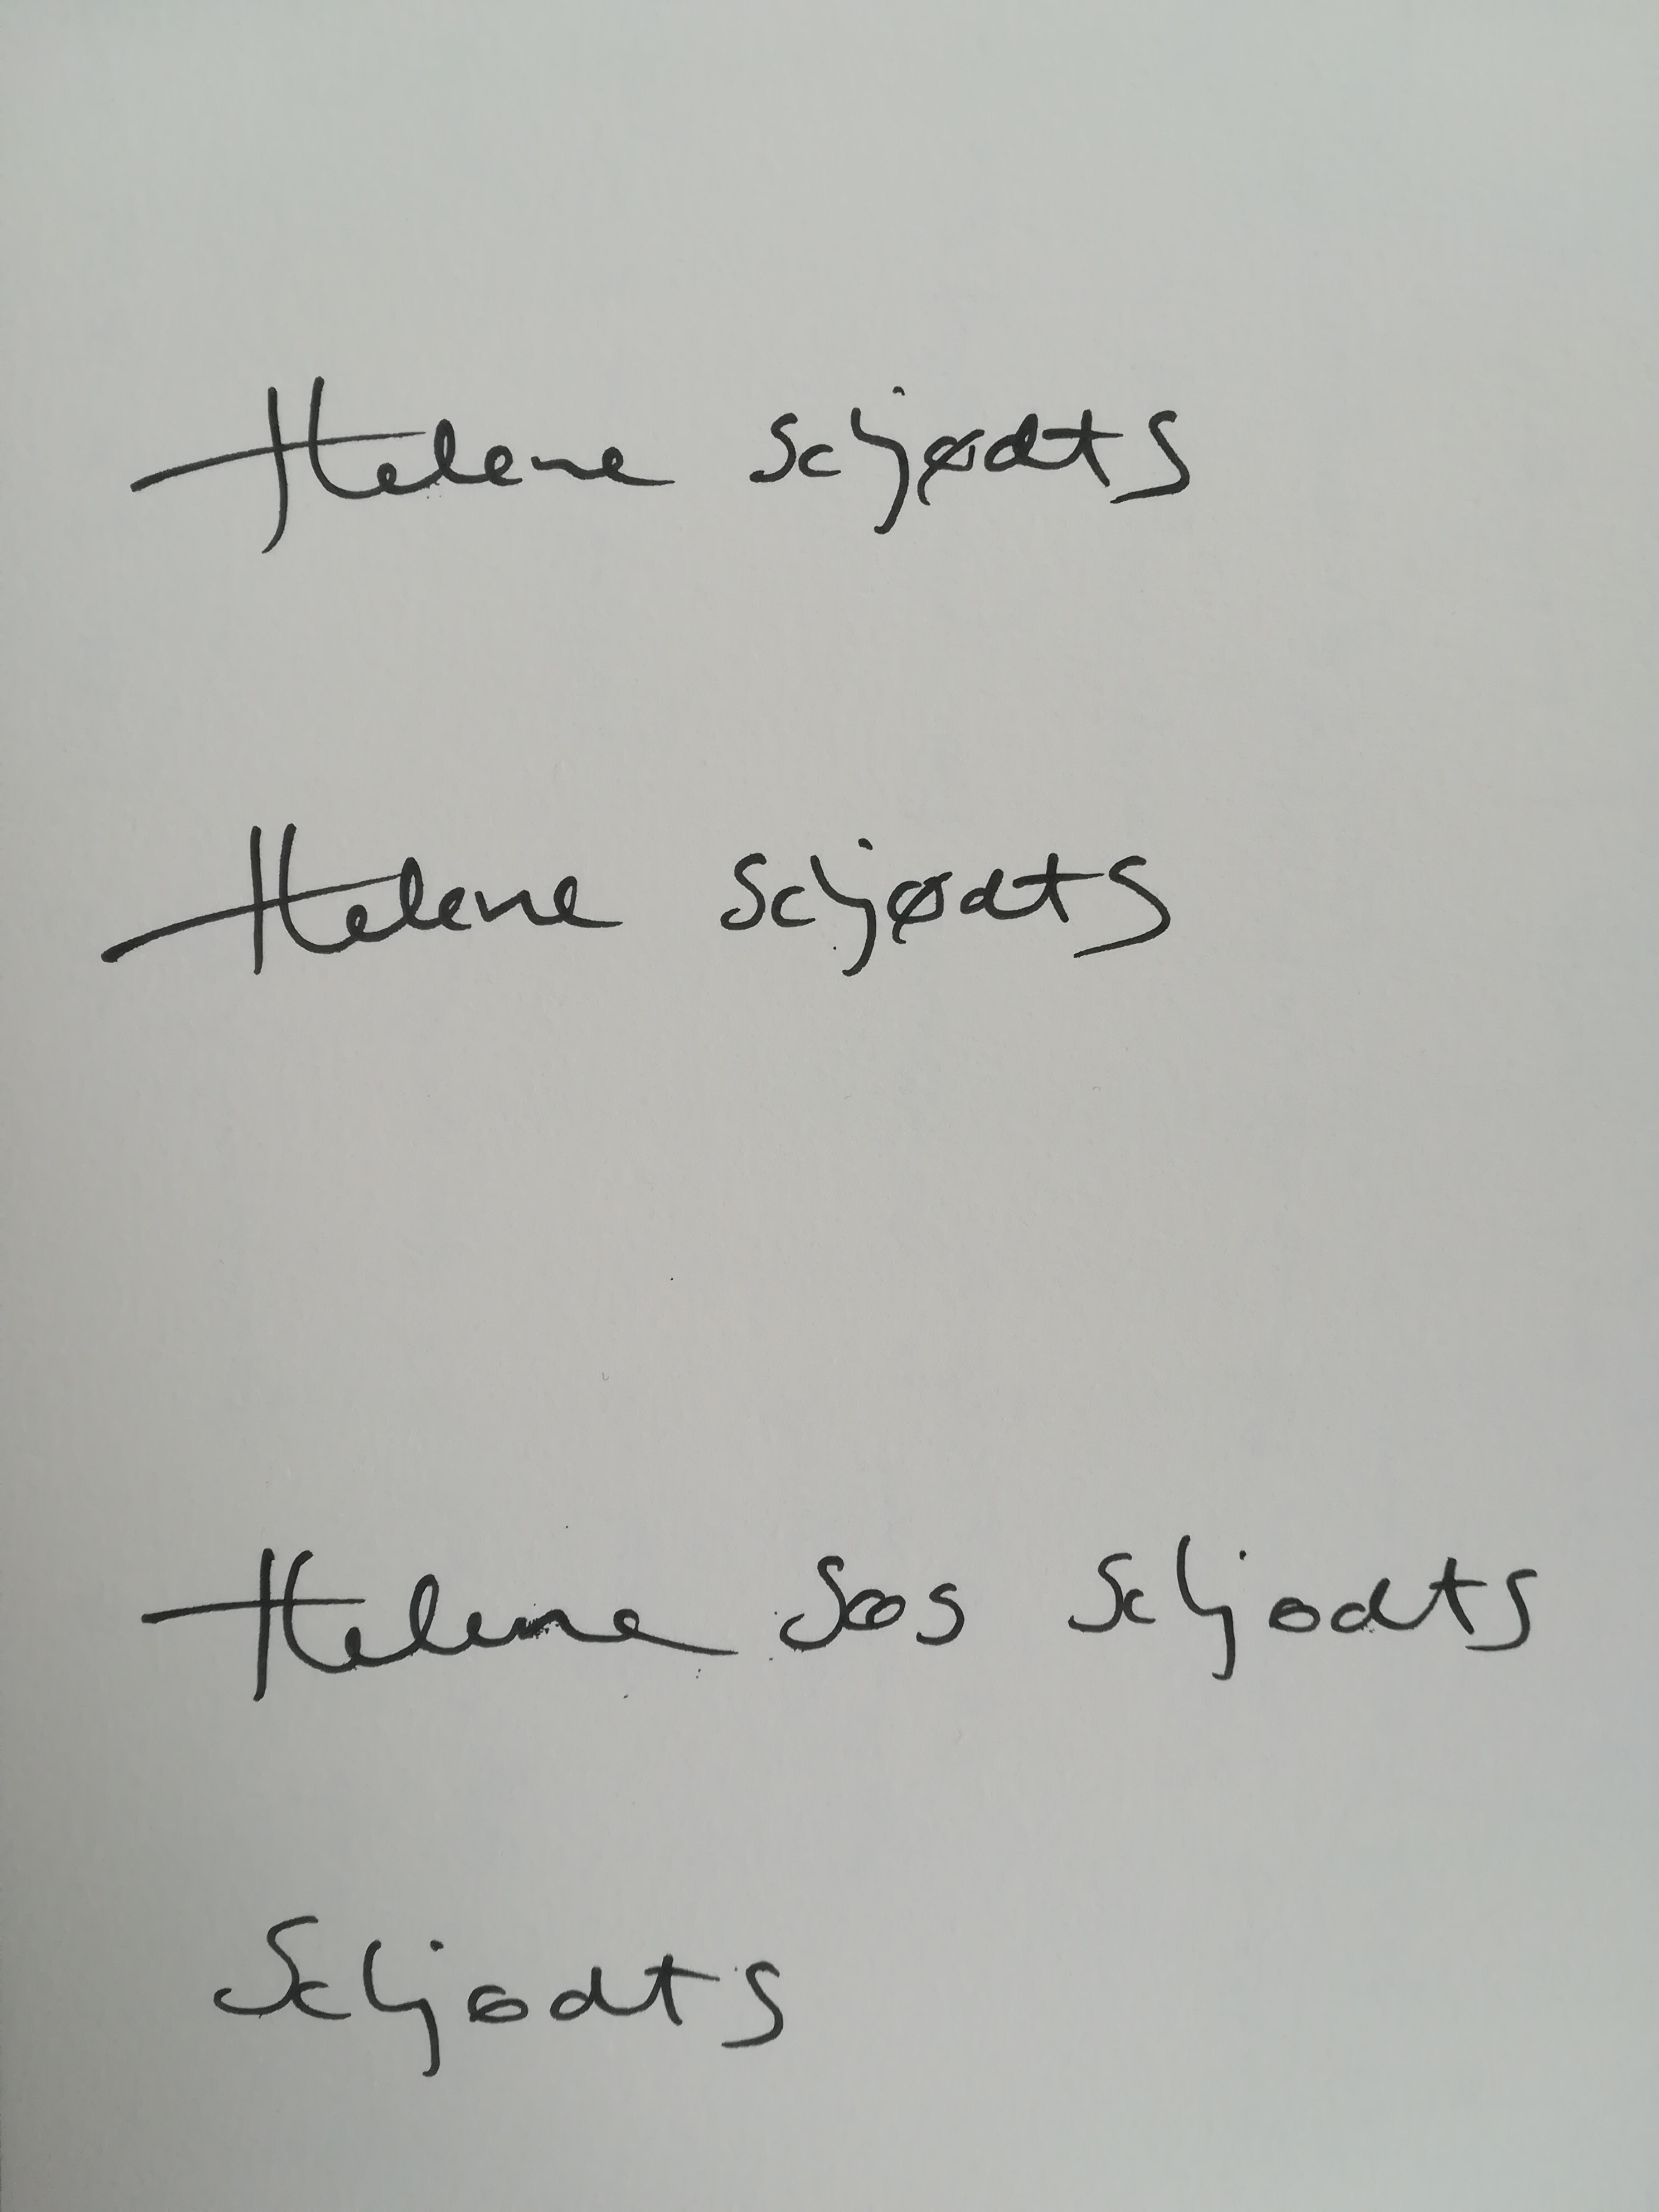 Helene Schjødts
Helene Schjødts
Helene Soos Schjodts
Schjodts